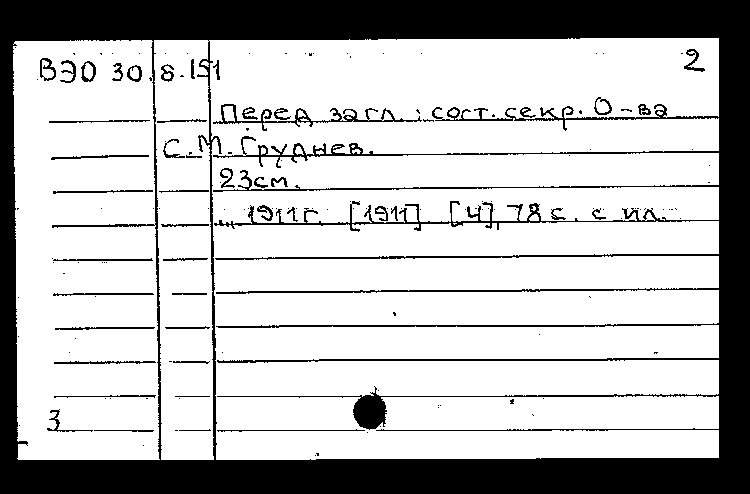 ВЭО 30.8.151 2
Перед загл.: сост. секр. О-ва
С.М. Груднев.
23см.
... 1911г. [1911] [4], 78 с. с ил.
3